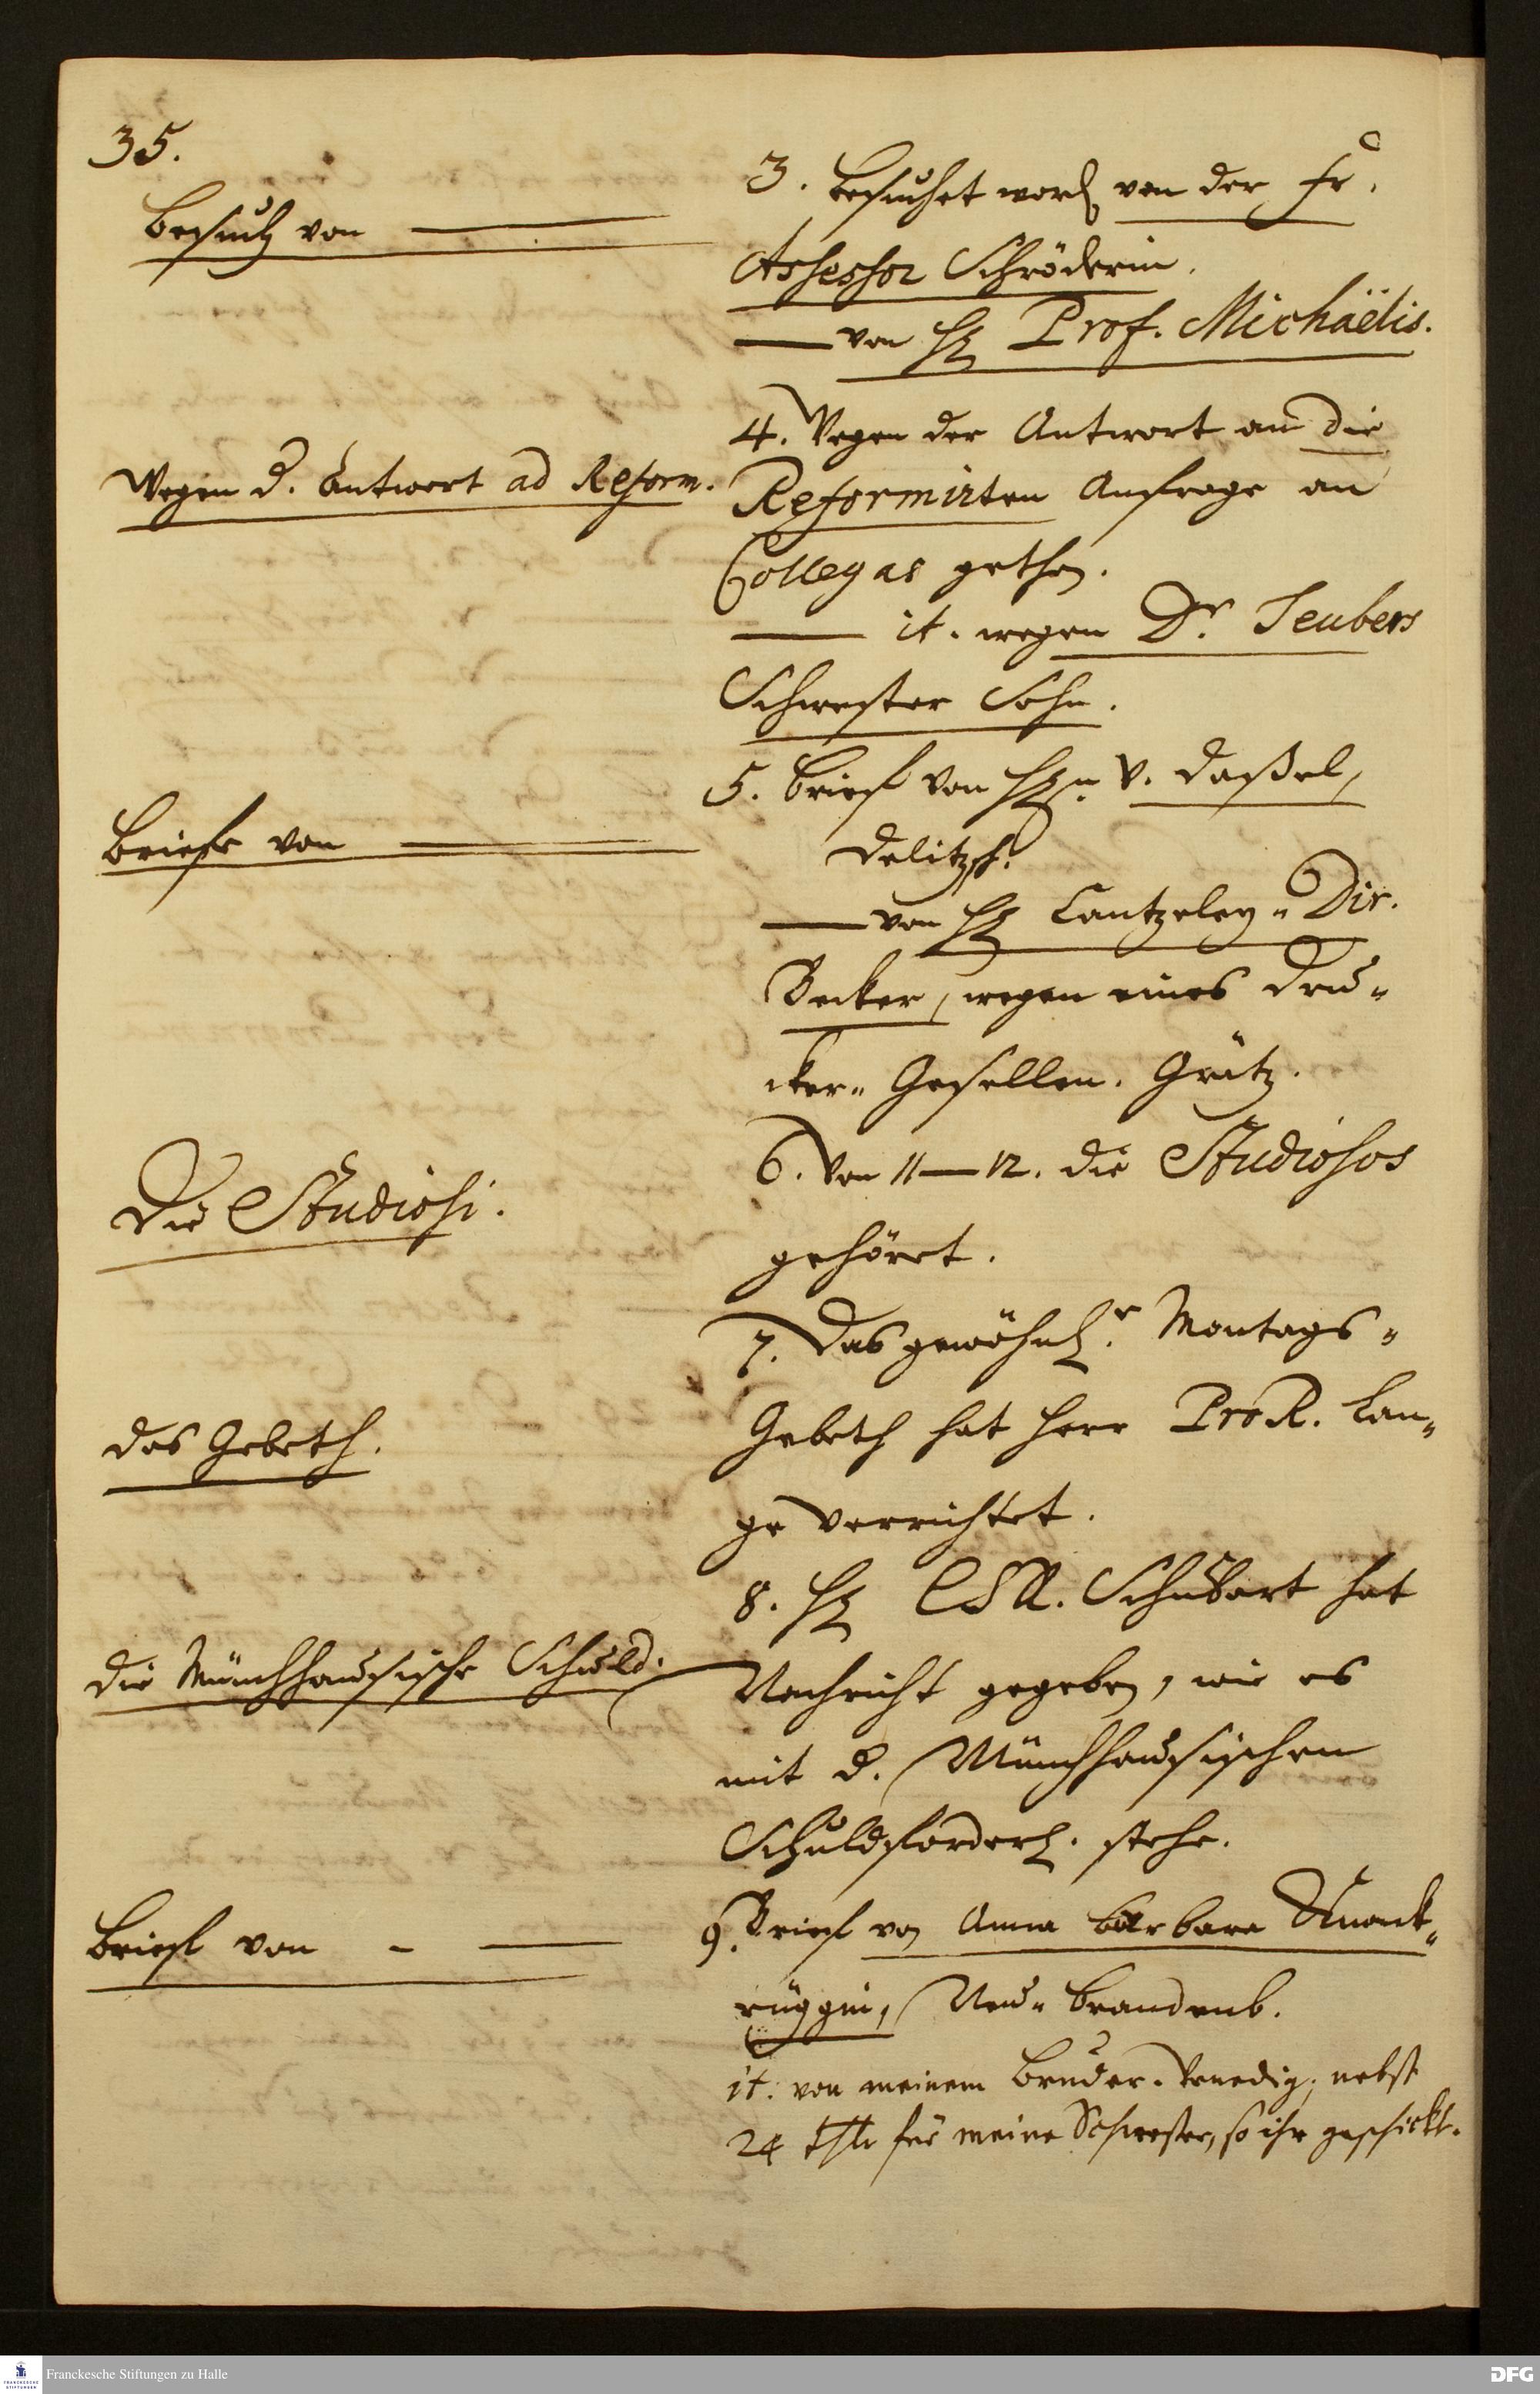 35.
Besuch von
3. besuchet word. von der Fr.
Assessor Schröderin.
von H. Prof. Michaëlis.
Wegen d. Antwort ad Reform.
4. Wegen der Antwort an die
Reformirten Anfrage an
Collegas gethan.
it. wegen Dr. Teubers
Schwester Sohn.
Briefe von
5. Brief von Hn. v. Daßel,
Delitzsch.
von H. Cantzeley-Dir.
Becker, wegen eines Dru-
cker-Gesellen. Grätz.
Die Studiosi.
6. Von 11-12. die Studiosos
gehöret.
Das Gebeth.
7. Das gewöhnl. Montags-
Gebeth hat Herr ProR. Lan-
ge verrichtet.
Die Münchhausische Schuld.
8. H. Schubart hat
Nachricht gegeben, wie es
mit d. Münchhausischen
Schuldforder. stehe.
Brief von -
9. Brief von Anna Barbara
Neu-Brandenb.
it. von meinem Bruder. Venedig, nebst
24 thlr für meine Schwester, so ihr geschickt.
Franckesche Stiftungen zu Halle
DFG